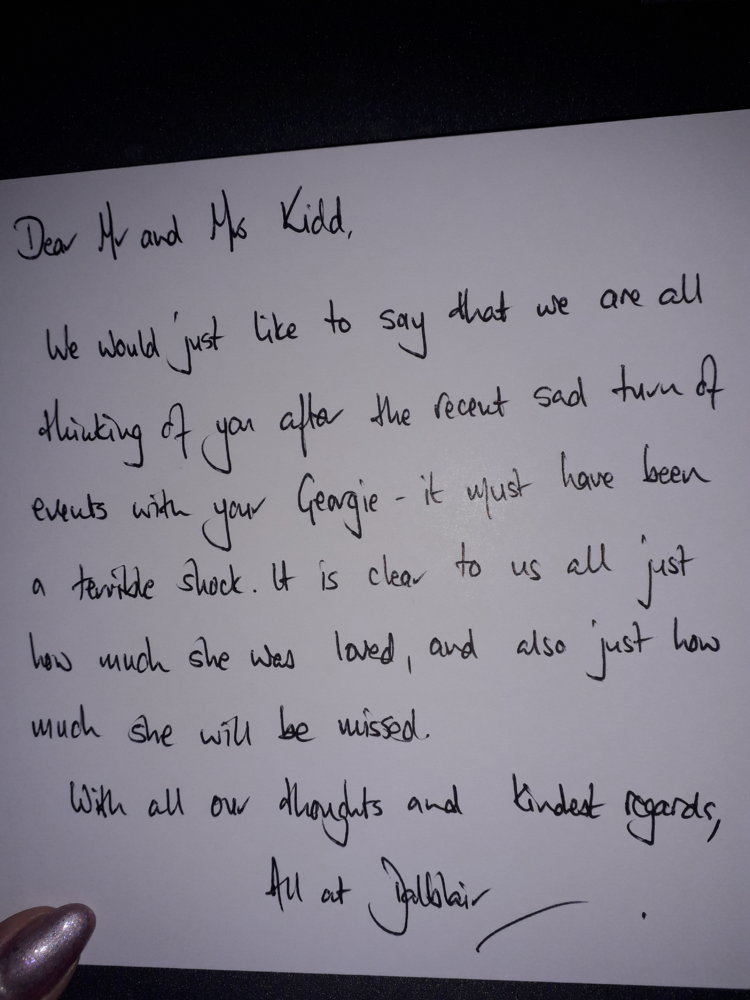 Dear Mr and Mrs Kidd,
We would just like to say that we are all
thinking of you after the recent sad turn of
events with your Georgie - it must have been
a terrible shock. It is clear to us all just
how much she was loved, and also just how
much she will be missed.
With all our thoughts and kindest regards,
All at Dalblair